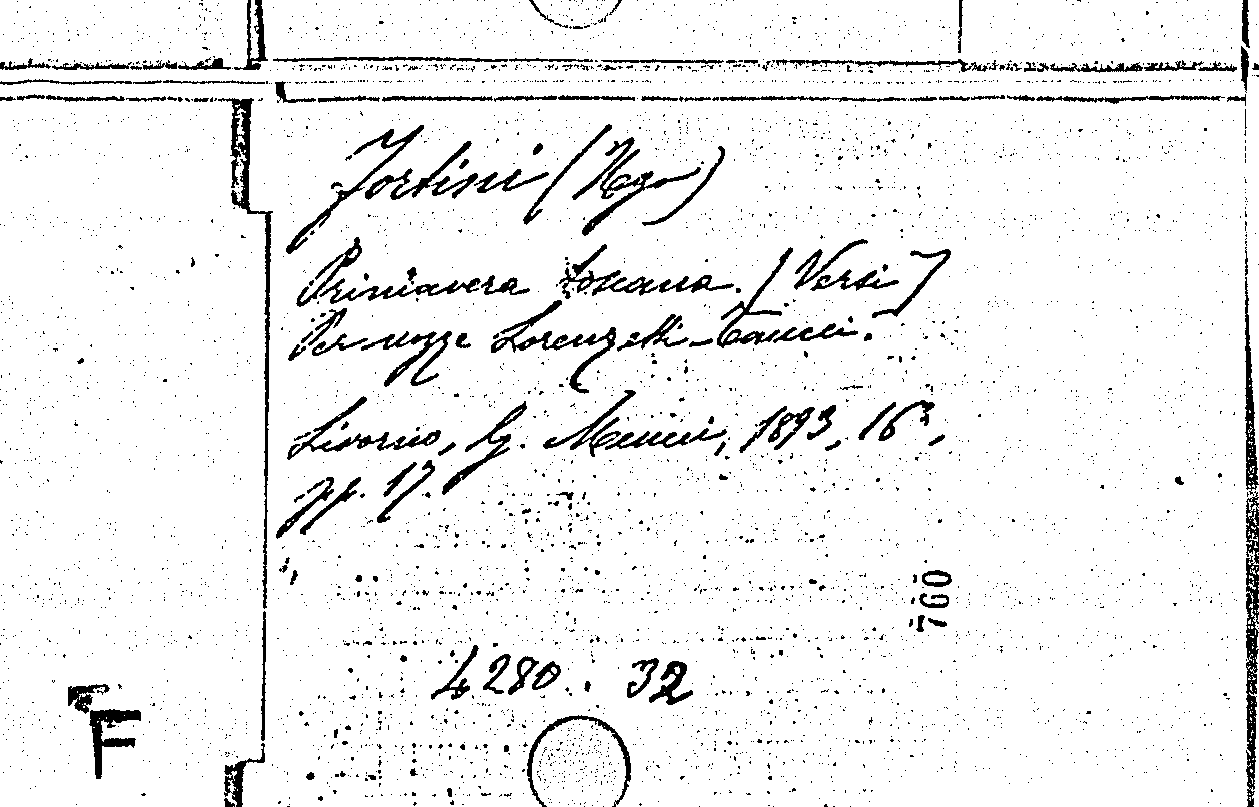 Fortini (Ugo)
Primavera toscana. [Versi]
Per nozze Lorenzetti-Caucci.
Livorno, G. Meucci, 1893, 16°,
pp. 17.
760
4280. 32
F